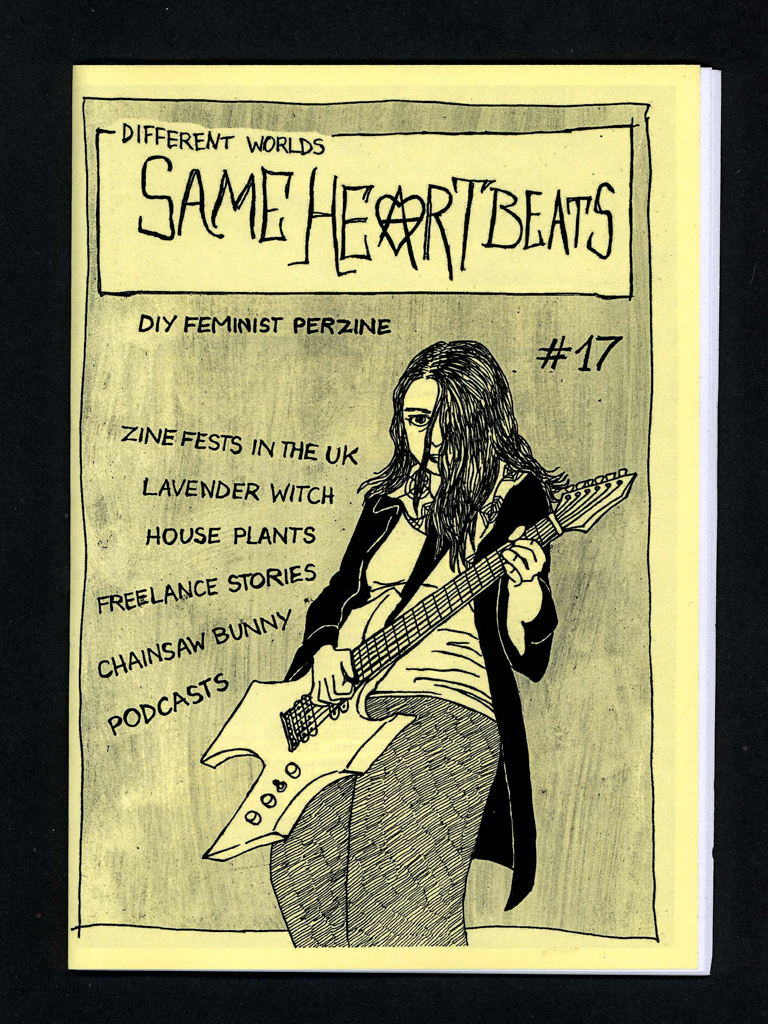 DIFFERENT WORLDS
SAME HEARTBEATS
DIY FEMINIST PERZINE
#17
ZINE FESTS IN THE UK
LAVENDER WITCH
HOUSE PLANTS
FREELANCE STORIES
CHAINSAW BUNNY
PODCASTS